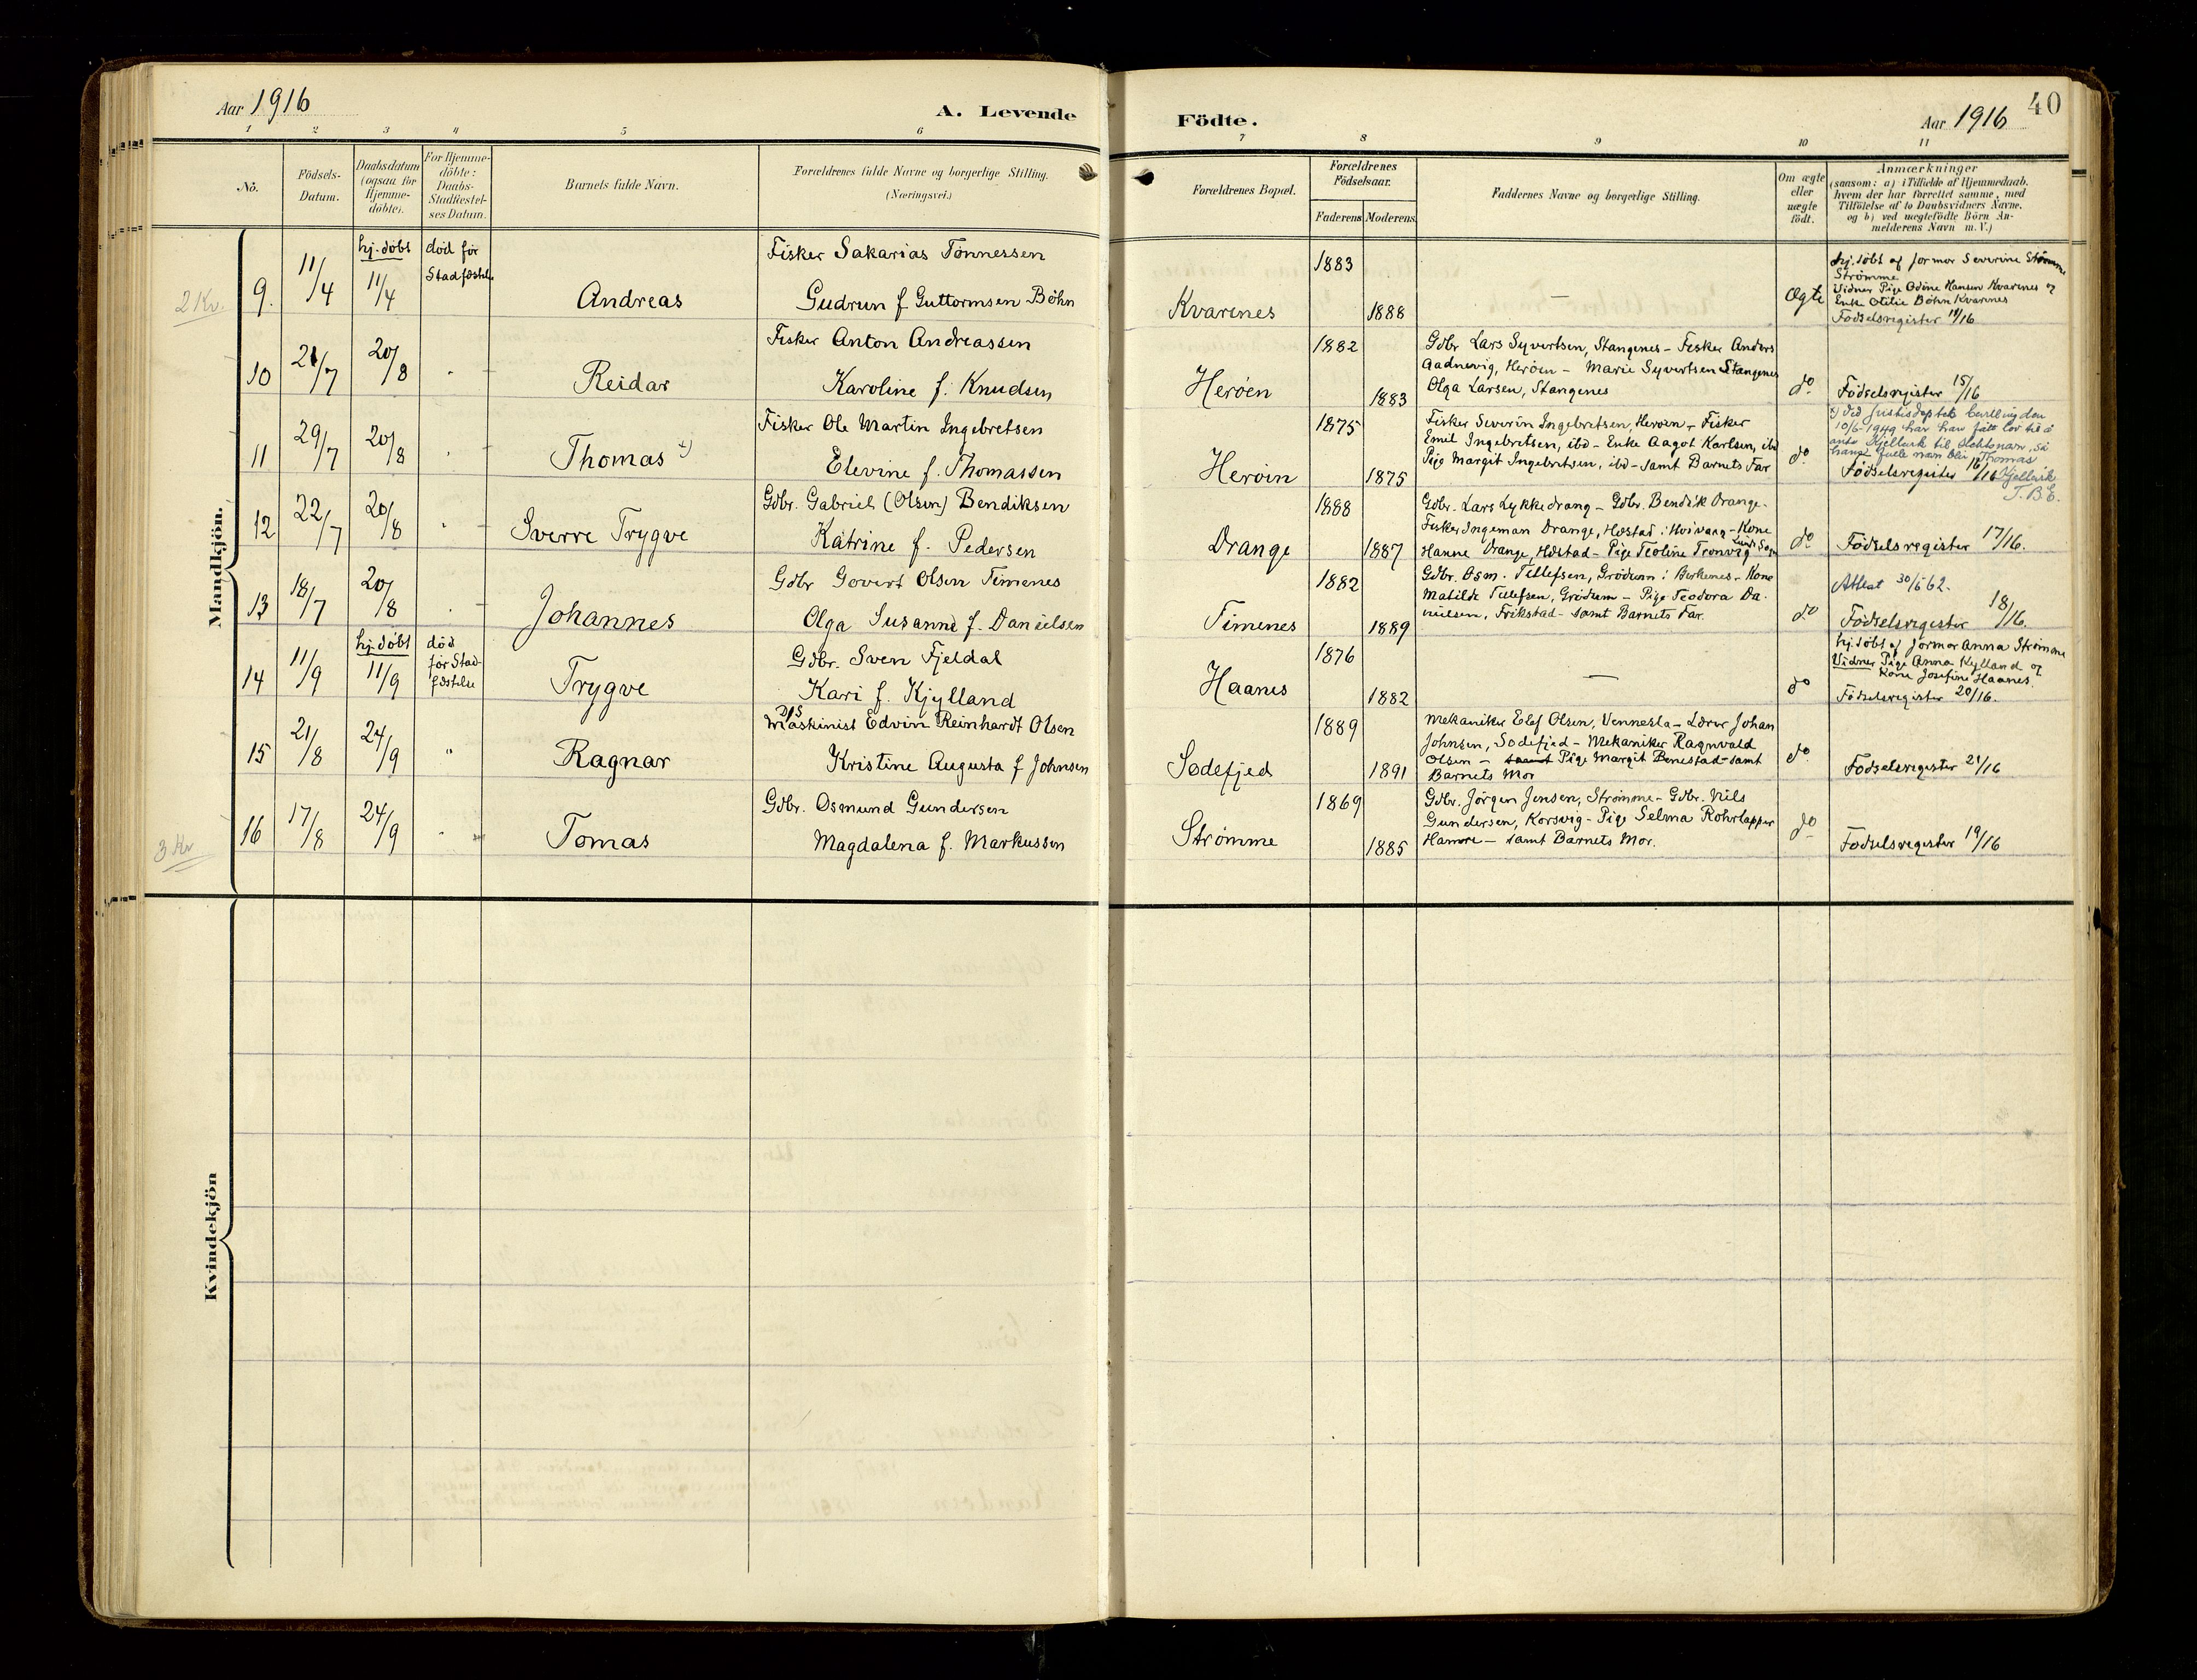 Aar 1916
A. Levende
Födte.
Aar 1916
40
1 2 3 4 5 6 7 8 9 10 11
No.
Födsels-
Datum.
Daabsdatum
(ogsaa for
Hjemme-
döbte).
For Hjemme-
döbte:
Daabs-
Stadfestel-
ses Datum.
Barnets fulde Navn.
Forældrenes fulde Navne og borgerlige Stilling.
(Næringsvei.)
Forældrenes Bopæl.
Forældrenes
Födselsaar.
Faderens
Moderens
Faddernes Navne og borgerlige Stilling.
Om ægte
eller
uægte
født.
Anmærkninger
(saasom: a) i Tilfælde af Hjemmedaab.
hvem der har forrettet samme, med
Tilföielse af to Daabsvidners Navne.
og b) ved uægtefödte Börn An-
melderens Navn m. V.)
Mandkjön.
2 Kr.
9.
11/4
hj. døbt
11/4
død før
Stadfæstel.
Andreas
Fisker Sakarias Tønnessen
Gudrun f Guttormsen Bøhn
Kvarenes
1883
1888
—
Ægte
hj. døbt af formor Severine Strømme
Strømme
Vidner Pige Odine Hansen Kvarenes og
Enke Otilie Bøhn Kvarenes
Fødselsregister 14/16
10
21/7
20/8
Reidar
Fisker Anton Andreassen
Karoline f. Knudsen
Herøen
1882
1883
Gdbr Lars Syvertsen, Stangenes - Fisker Anders
Aadnevig, Herøen - Marie Syvertsen Stangenes
Olga Larsen, Stangenes
do
Fødselsregister 15/16
11
29/7
20/8
Thomas x)
Fisker Ole Martin Ingebretsen
Elevine f. Thomassen
Herøin
1875
1875
Fisker Severin Ingebretsen, Herøen - Fisker
Emil Ingebretsen, ibd - Enke Aagot Karlsen, ibd
Pige Margit Ingebretsen, ibd - samt Barnets Far
do
x) Ved Justisdeptets bevilling den
10/6-1949 har han fått lov til å
anta Kjellevik til slektsnavn, så
hans fulle navn blir Thomas
Kjellevik
T. B. E.
Fødselsregister 16/16
12
22/7
20/8
Sverre Trygve
Gdbr. Gabriel (Olsen) Bendiksen
Katrine f. Pedersen
Drange
1888
1887
Gdbr. Lars Lykkedrang - Gdbr. Bendik Drange -
Fisker Ingeman Drange, Høstad i Hvivaag - Kone
Hanne Drange, Høstad - Pige Teoline Tronvig
do
Fødselsregister 17/16.
13
18/7
20/8
Johannes
Gdbr Govert Olsen Timenes
Olga Susanne f. Danielsen
Timenes
1882
1889
Gdbr. Osm. Tellefsen, Grødum i Birkenes - Kone
Matilde Tellefsen, Grødum - Pige Teodora Da-
nielsen, Frikstad - samt Barnets Far.
do
Attest 30/1 62.
Fødselsregister 18/16.
14
11/9
hj. døbt
11/9
død
før Stad-
fæstelse
Trygve
Gdbr. Sven Fjeldal
Kari f. Kjylland
Haanes
1876
1882
—
do
hj. døbt af formor Anna Strømme
Vidner Pige Anna Kylland og
Kone Josefine Haanes.
Fødselsregister 20/16.
15
21/8
24/9
"
Ragnar
D/S
Maskinist Edvin Reinhardt Olsen
Kristine Augusta f Johnsen
Sødefjed
1889
1891
Mekaniker Elef Olsen, Vennesla - Lærer Johan
Johnsen, Sødefjed - Mekaniker Ragnvald
Olsen - samt Pige Margit Benestad - samt
Barnets Mor
do
Fødselsregister 21/16
3 Kr
16
17/8
24/9
"
Tomas
Gdbr. Osmund Gundersen
Magdalena f. Markussen
Strømme
1869
1885
Gdbr. Jørgen Jensen, Strømme - Gdbr. Nils
Gundersen, Korsvig - Pige Selma Rohrlapper
Hamre - samt Barnets Mor.
do
Fødselsregister 19/16
Kvindekjön